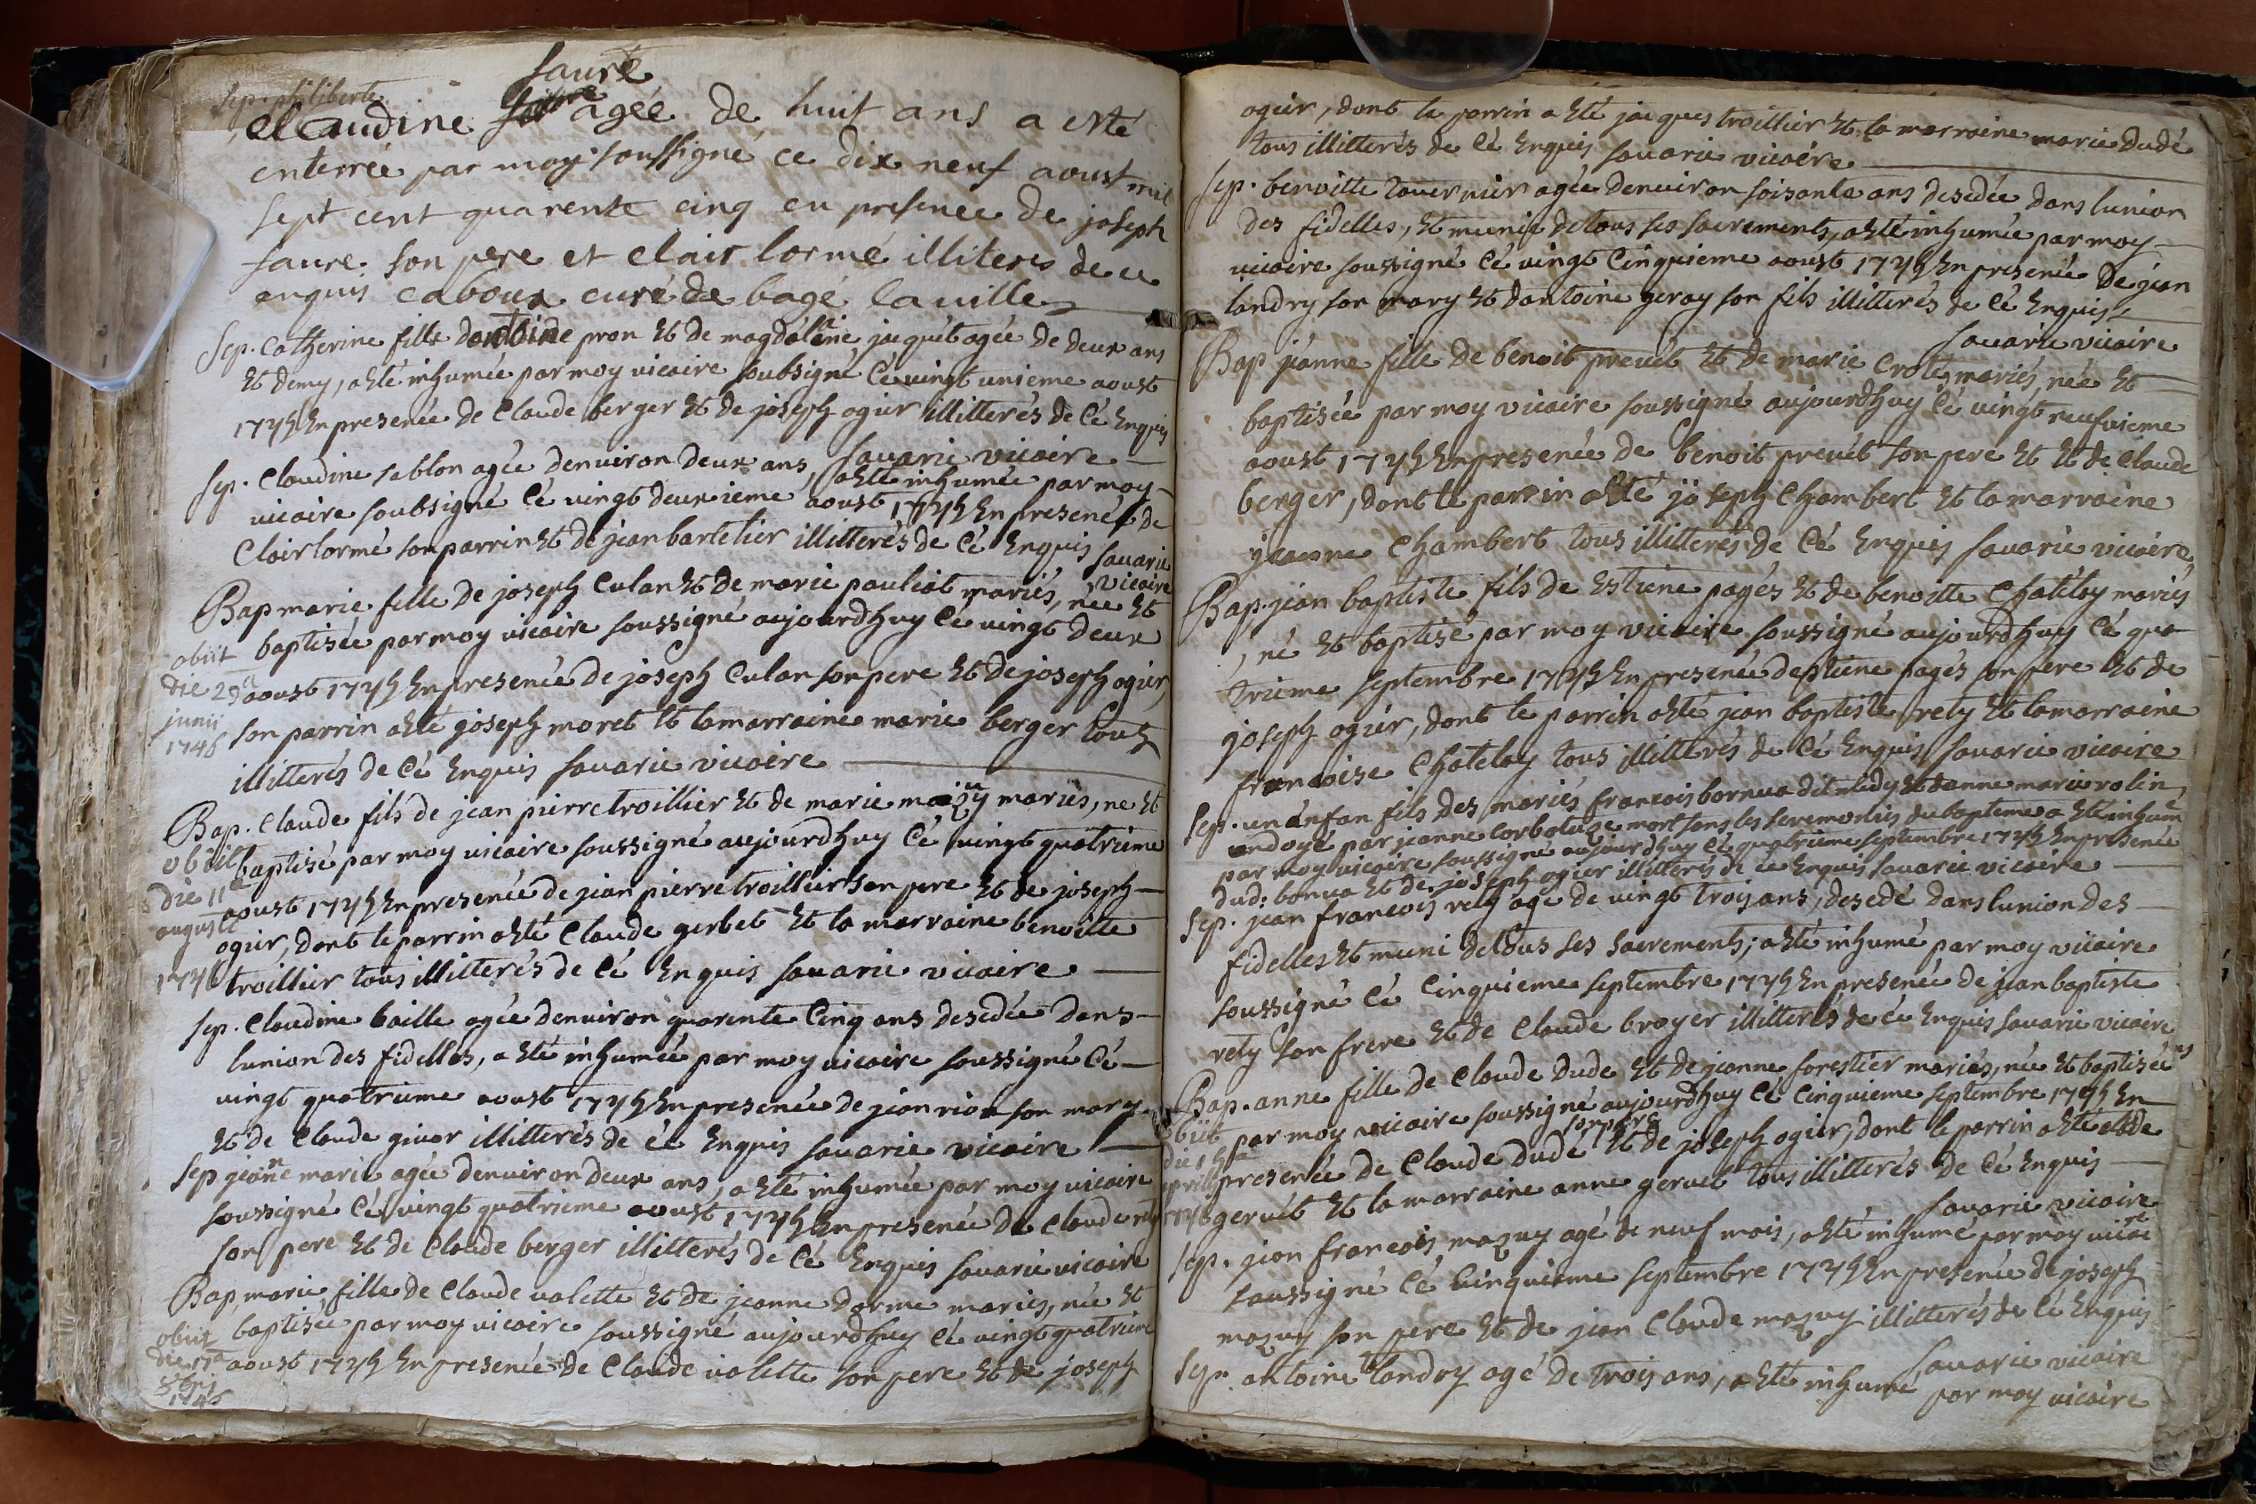 Sep. philiberte
faure
Claudine agée de huit ans a esté
enterrée par moy soussigné ce dix neuf aoust mil
sept cent quarente cinq en presence de joseph
faure son pere et clair lormé illiteres de ce
enquis caboux curé de bagé la uille
Sep. catherine fille dantoine pron Et de magdeleine jaquét agée de deux ans
Et demy, a Eté inhumée par moy uicaire soubsigné Cé uingt unieme aoust
1745 En presence de Claude berger Et de joseph ogier illitterés de Cé Enquis
sauarie uicaire
Sep. Claudine sablon agée denuiron deux ans, a Eté inhumée par moy
uicaire soubsigné Cé uingt deuxieme aoust 1745 En presence de
Clair lormé son parrin Et de jean bartelier illitterés de Cé Enquis sauarie
uicaire
Bap marie fille de joseph Culan Et de marie pauliat mariés, née Et
baptisée par moy uicaire soussigné aujourdhuy Cé uingt deux
obiit
die 29a aoust 1745 En presence de joseph Culan son pere Et de joseph ogier,
junii
1746 son parrin a Eté joseph moret Et la marraine marie berger tous
illitterés de Cé Enquis sauarie uicaire
Bap. Claude fils de jean pierre troillier Et de marie mazuy mariés, né Et
obiit baptisé par moy uicaire soussigné aujourdhuy Cé uingt quatrieme
die 11a aoust 1745 En presence de jean pierre troillier son pere Et de joseph
augusti ogier, dont le parrin a Eté Claude gerbet Et la marraine benoitte
1746 troillier tous illitterés de Cé Enquis sauarie uicaire
Sep. Claudine baille agée denuiron quarente Cinq ans desedée dans
lunion des fidelles, a Eté inhumée par moy uicaire soussigné Cé
uingt quatrieme aoust 1745 En presence de jean son mary
Et de Claude giuor illitterés de cé Enquis sauarie uicaire
Sep jeanne marie agée denuiron deux ans, a Eté inhumée par moy uicaire
soussigné Cé uingt quatrieme aoust 1745 En presence de Claude
son pere Et de Claude berger illitterés de Cé Enquis sauarie uicaire
Bap, marie fille de Claude ualette Et de jeanne dorme mariés, née Et
obiit baptisée par moy uicaire soussigné aujourdhuy Cé uingt quatrieme
die aoust 1745 En presence de Claude ualette son pere Et de joseph
1746
ogier, dont le parrin a Eté jacques troillier Et la marraine marie dudé
tous illitterés de Cé Enquis sauarie uicaire
Sep. benoitte tauernier agée denuiron soisante ans desedée dans lunion
des fidelles, Et munie de tous ses sacrements, a Eté inhumée par moy
uicaire soussigné Cé uingt Cinquieme aoust 1745 En presence de jean
landry son mary Et dantoine geray son fils illitterés de Cé Enquis,
sauarie uicaire
Bap jeanne fille de benoit preuét Et de marie Crote mariés, née Et
baptisée par moy uicaire soussigné aujourdhuy Cé uingt neufuieme
aoust 1745 En presence de benoit preuét son pere Et Et de Claude
berger, dont le parrin a Eté joseph Chambert Et la marraine
jeanne Chambert tous illitterés de Cé Enquis sauarie uicaire,
Bap. jean baptiste fils de Estiene pagés Et de benoitte Chateloy mariés
, né Et baptisé par moy uicaire soussigné aujourdhuy Cé qua
trieme septembre 1745 En presence destiene pagés son pere Et de
joseph ogier, dont le parrin a Eté jean baptiste rely Et la marraine
francoise Chateloy tous illitterés de Cé Enquis sauarie uicaire
Sep. un énfan fils des mariés francois bornua dit Et danne marie rolin,
ondoyé par jeanne Corbatuge mort sans les seremonies du bapteme a Eté inhumé
par moy uicaire soussigné aujourdhuy Cé quatrieme septembre 1745 En presence
dud: bornua Et de joseph ogier illitterés de ce Enquis sauarie uicaire
Sep. jean francois rely agé de uingt trois ans, desedé dans lunion des
fidelles Et muni de tous ses sacrements; a Eté inhumé par moy uicaire
soussigné Cé Cinquieme septembre 1745 En presence de jean baptiste
rely son frere Et de Claude broyer illitterés de cé Enquis sauarie uicaire
Bap. anne fille de Claude dude Et de jeanne forestier mariés, née Et baptisée
obiit par moy uicaire soussigné aujourdhuy Cé Cinquieme septembre 1745 En
son pere
die
aprilis presence de Claude dudé Et de joseph ogier, dont le parrin a Eté clode
1746 geruét Et la marraine anne geruet tous illitterés de Cé Enquis
sauarie uicaire
Sep. jean francois mazuy agé de neuf mois, a Eté inhumé par moy uicaire
soussigné Cé Cinquieme septembre 1745 En presence de joseph
mazuy son pere Et de jean Claude mazuy illitterés de Cé Enquis
sauarie uicaire
Sep. antoine landry agé de trois ans, a Eté inhumé par moy uicaire